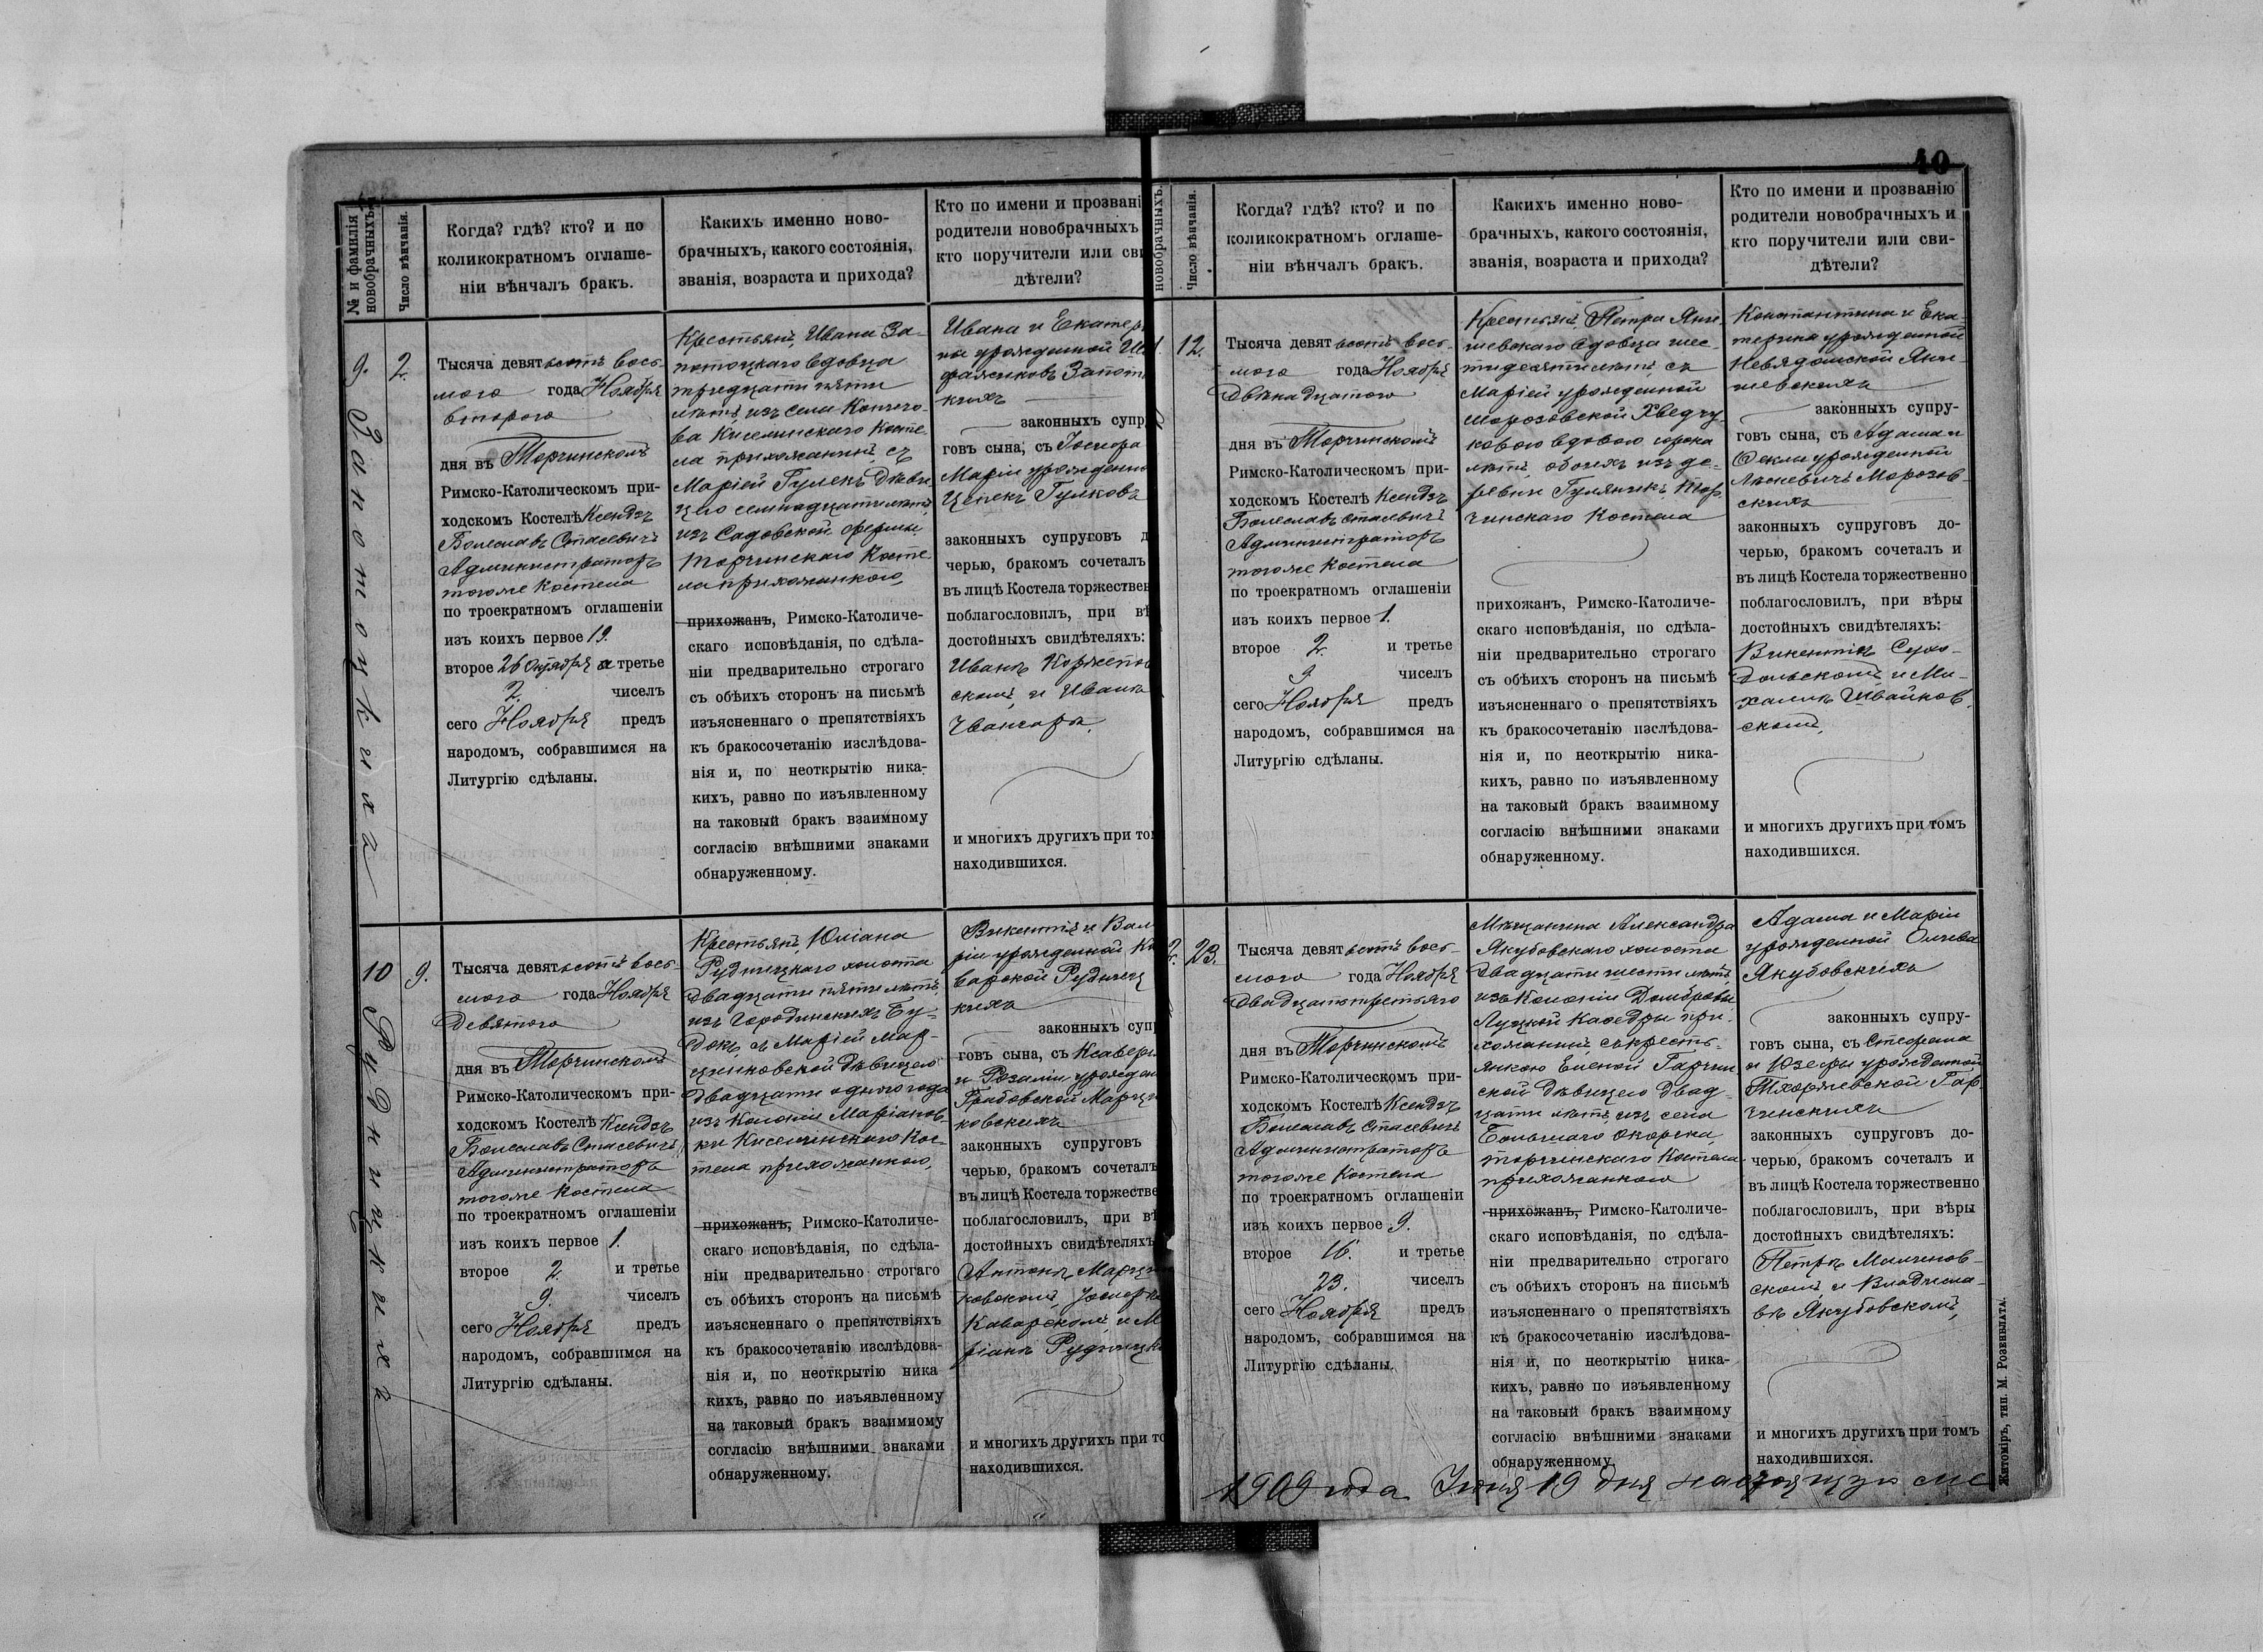 № и фамилія новобрачныхъ.
Число вѣнчанія.
Когда? гдѣ? кто? и по
коликократномъ оглаше-
ніи вѣнчалъ бракъ.
Какихъ именно ново-
брачныхъ, какого состоянія,
званія, возраста и прихода?
Кто по имени и прозвані
родители новобрачныхъ
кто поручители или сви
дѣтели?
9.
Запотоцкихъ
2.
Тысяча девятьсотъ вось-
мого года Ноября
второго
дня въ Торчинскомъ
Римско-Католическомъ при-
ходскомъ Костелѣ Ксендзъ
Болеславъ Стасевичъ
Администраторъ
тогоже Костела
по троекратномъ оглашеніи
изъ коихъ первое 19.
второе 26 Октября а третье
2 чиселъ
сего Ноября предъ
народомъ, собравшимся на
Литургію сдѣланы.
Крестьян. Ивана За-
потоцкаго вдовца
тридцати пяти
лѣтъ, изъ села
Киселинскаго Косте-
ла прихожанин, съ
Маріей Гулекъ Дѣви-
цею семнадцати лѣтъ,
изъ Садовской фермы
Торчинскаго Косте-
ла прихожанкою,
прихожанъ, Римско-Католиче-
скаго исповѣданія, по сдѣла-
ніи предварительно строгаго
съ обѣихъ сторонъ на письмѣ
изъясненнаго о препятствіяхъ
къ бракосочетанію изслѣдова-
нія и, по неоткрытію ника-
кихъ, равно по изъявленному
на таковый бракъ взаимному
согласію внѣшними знаками
обнаруженному.
Ивана и Екатер
ны урожденной
Запот
кихъ
законныхъ супр
говъ сына, съ Іосифа
Маріи урожденно
Цепекъ Гулковъ
законныхъ супруговъ д
черью, бракомъ сочеталъ
въ лицѣ Костела торжествен
поблагословилъ, при вѣ
достойныхъ свидѣтеляхъ:
Иванъ
скомъ, и Иванъ
и многихъ другихъ при то
находившихся.
10
Рудницкихъ
9.
Тысяча девятьсотъ вось-
мого года Ноября
Девятого
дня въ Торчинскомъ
Римско-Католическомъ при-
ходскомъ Костелѣ Ксендзъ
Болеславъ Стасевичъ
Администраторъ
тогоже Костела
по троекратномъ оглашеніи
изъ коихъ первое 1.
второе 2. и третье
9. чиселъ
сего Ноября предъ
народомъ, собравшимся на
Литургію сдѣланы.
Крестьян. Юліана
Рудницкаго холоста
двадцати пяти лѣтъ,
изъ Городинскихъ Бу-
докъ, съ Маріей Мар-
цинковской Дѣвицею
двадцати одного года
изъ Колоніи Маріанов-
ки Киселинскаго Кос-
тела прихожанкою,
прихожанъ, Римско-Католиче-
скаго исповѣданія, по сдѣла-
ніи предварительно строгаго
съ обѣихъ сторонъ на письмѣ
изъясненнаго о препятствіяхъ
къ бракосочетанію изслѣдова-
нія и, по неоткрытію ника
кихъ, равно по изъявленному
на таковый бракъ взаимному
согласію внѣшними знаками
обнаруженному.
Викентія и Вал
ріи урожденной Ка
варской Рудниц
кихъ
законныхъ супр
говъ сына, съ Ксавері
и Розаліи урожден
Грабовской Марци
ковскихъ
законныхъ супруговъ
черью, бракомъ сочеталъ
въ лицѣ Костела торжестве
поблагословилъ, при вѣ
достойныхъ свидѣтеляхъ
Антонъ Марци
ковскомъ, Іосифъ
Каварскомъ, и М
ріанъ Рудницк
и многихъ другихъ при то
находившихся.
40
новобрачныхъ.
Число вѣнчанія.
Когда? гдѣ? кто? и по
коликократномъ оглаше-
ніи вѣнчалъ бракъ.
Какихъ именно ново-
брачныхъ, какого состоянія,
званія, возраста и прихода?
Кто по имени и прозванію
родители новобрачныхъ и
кто поручители или сви-
дѣтели?
1.
12.
Тысяча девятьсотъ вось-
мого года Ноября
Двѣнадцатого
дня въ Торчинскомъ
Римско-Католическомъ при-
ходскомъ Костелѣ Ксендзъ
Болеславъ Стасевичъ
Администраторъ
тогоже Костела
по троекратномъ оглашеніи
изъ коихъ первое 1.
второе 2. и третье
9 чиселъ
сего Ноября предъ
народомъ, собравшимся на
Литургію сдѣланы.
Крестьян. Петра Яни-
шевскаго вдовца шес-
тидесяти лѣтъ, съ
Маріей урожденной
Морозовской Хведчу-
ковою вдовою сорока
лѣтъ, обоихъ изъ де-
ревни Гулянникъ Тор-
чинскаго Костела
прихожанъ, Римско-Католиче-
скаго исповѣданія, по сдѣла-
ніи предварительно строгаго
съ обѣихъ сторонъ на письмѣ
изъясненнаго о препятствіяхъ
къ бракосочетанію изслѣдова-
нія и, по неоткрытію ника-
кихъ, равно по изъявленному
на таковый бракъ взаимному
согласію внѣшними знаками
обнаруженному.
Константина и Ека-
терина урожденной
Невядомской Яни-
шевскихъ
законныхъ супру-
говъ сына, съ Адама и
Ѳеклы урожденной
Морозов-
скихъ
законныхъ супруговъ до-
черью, бракомъ сочеталъ и
въ лицѣ Костела торжественно
поблагословилъ, при вѣры
достойныхъ свидѣтеляхъ:
Викентіи Сухо-
дольскомъ, и Ми-
хаилъ Швайков-
скомъ,
и многихъ другихъ при томъ
находившихся.
2.
23.
Тысяча девятьсотъ вось-
мого года Ноября
Двадцатьтретьяго
дня въ Торчинскомъ
Римско-Католическомъ при-
ходскомъ Костелѣ Ксендзъ
Болеславъ Стасевичъ
Администраторъ
тогоже Костела
по троекратномъ оглашеніи
изъ коихъ первое 9.
второе 16. и третье
23. чиселъ
сего Ноября предъ
народомъ, собравшимся на
Литургію сдѣланы.
Мѣщанина Александра
Якубовскаго холоста
двадцати шести лѣтъ,
изъ Колоніи Домбровы,
Луцкой Каѳедры при-
хожанин, съ кресть-
янкою Еленой Гарчин-
ской дѣвицею двад-
цати лѣтъ, изъ села
Большаго Окорска,
торчинскаго Костела
прихожанкою
прихожанъ, Римско-Католиче-
скаго исповѣданія, по сдѣла-
ніи предварительно строгаго
съ обѣихъ сторонъ на письмѣ
изъясненнаго о препятствіяхъ
къ бракосочетанію изслѣдова-
нія и, по неоткрытію ника-
кихъ, равно по изъявленному
на таковый бракъ взаимному
согласію внѣшними знаками
обнаруженному.
Адама и Маріи
урожденной
Якубовскихъ
законныхъ супру-
говъ сына, съ Стефана
и Юзефы урожденной
Тхоржевской Гар-
чинскихъ
законныхъ супруговъ до-
черью, бракомъ сочеталъ и
въ лицѣ Костела торжественно
поблагословилъ, при вѣры
достойныхъ свидѣтеляхъ:
Петръ
скомъ, и Владисла-
въ Якубовскомъ,
и многихъ другихъ при томъ
находившихся.
1909 года Іюня 19 дня настоящую ме
Житоміръ, тип. М. Розенблата.